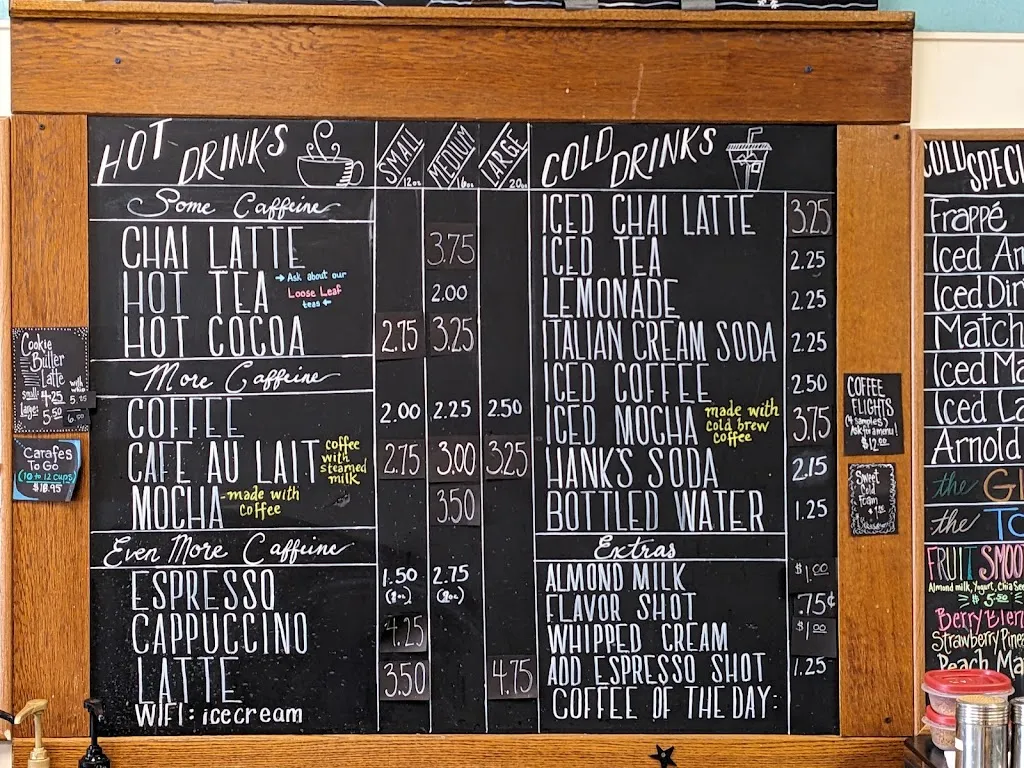 HOT DRINKS SMALL 12oz MEDIUM 16oz LARGE 20oz
Some Caffeine
CHAI LATTE 3.75
HOT TEA → Ask about our Loose Leaf teas ← 2.00
HOT COCOA 2.75 3.25
More Caffeine
COFFEE 2.00 2.25 2.50
CAFE AU LAIT coffee with steamed milk 2.75 3.00 3.25
MOCHA -made with coffee 3.50
Even More Caffeine
ESPRESSO 1.50 2.75
CAPPUCCINO 4.25
LATTE 3.50 4.75
WIFI: icecream
COLD DRINKS
ICED CHAI LATTE 3.25
ICED TEA 2.25
LEMONADE 2.25
ITALIAN CREAM SODA 2.25
ICED COFFEE 2.50
ICED MOCHA made with cold brew coffee 3.75
HANK'S SODA 2.15
BOTTLED WATER 1.25
Extras
ALMOND MILK $1.00
FLAVOR SHOT .75¢
WHIPPED CREAM $1.00
ADD ESPRESSO SHOT 1.25
COFFEE OF THE DAY:
Cookie
Butter
Latte
with whip
small: 4.25
large: 5.50 6.00
Carafes
To Go
(10 to 12 cups)
$18.95
COFFEE
FLIGHTS
(4 samples)
Ask for a menu!
$12.00
Sweet
Cold
Foam
COLD SPECI
Frappé
Iced Ar
Iced Dir
Match
Iced Ma
Iced La
Arnold
the Gl
the To
FRUIT SMOO
Almond milk, Yogurt, Chia See
Berry Blen
Strawberry Pine
Peach Ma